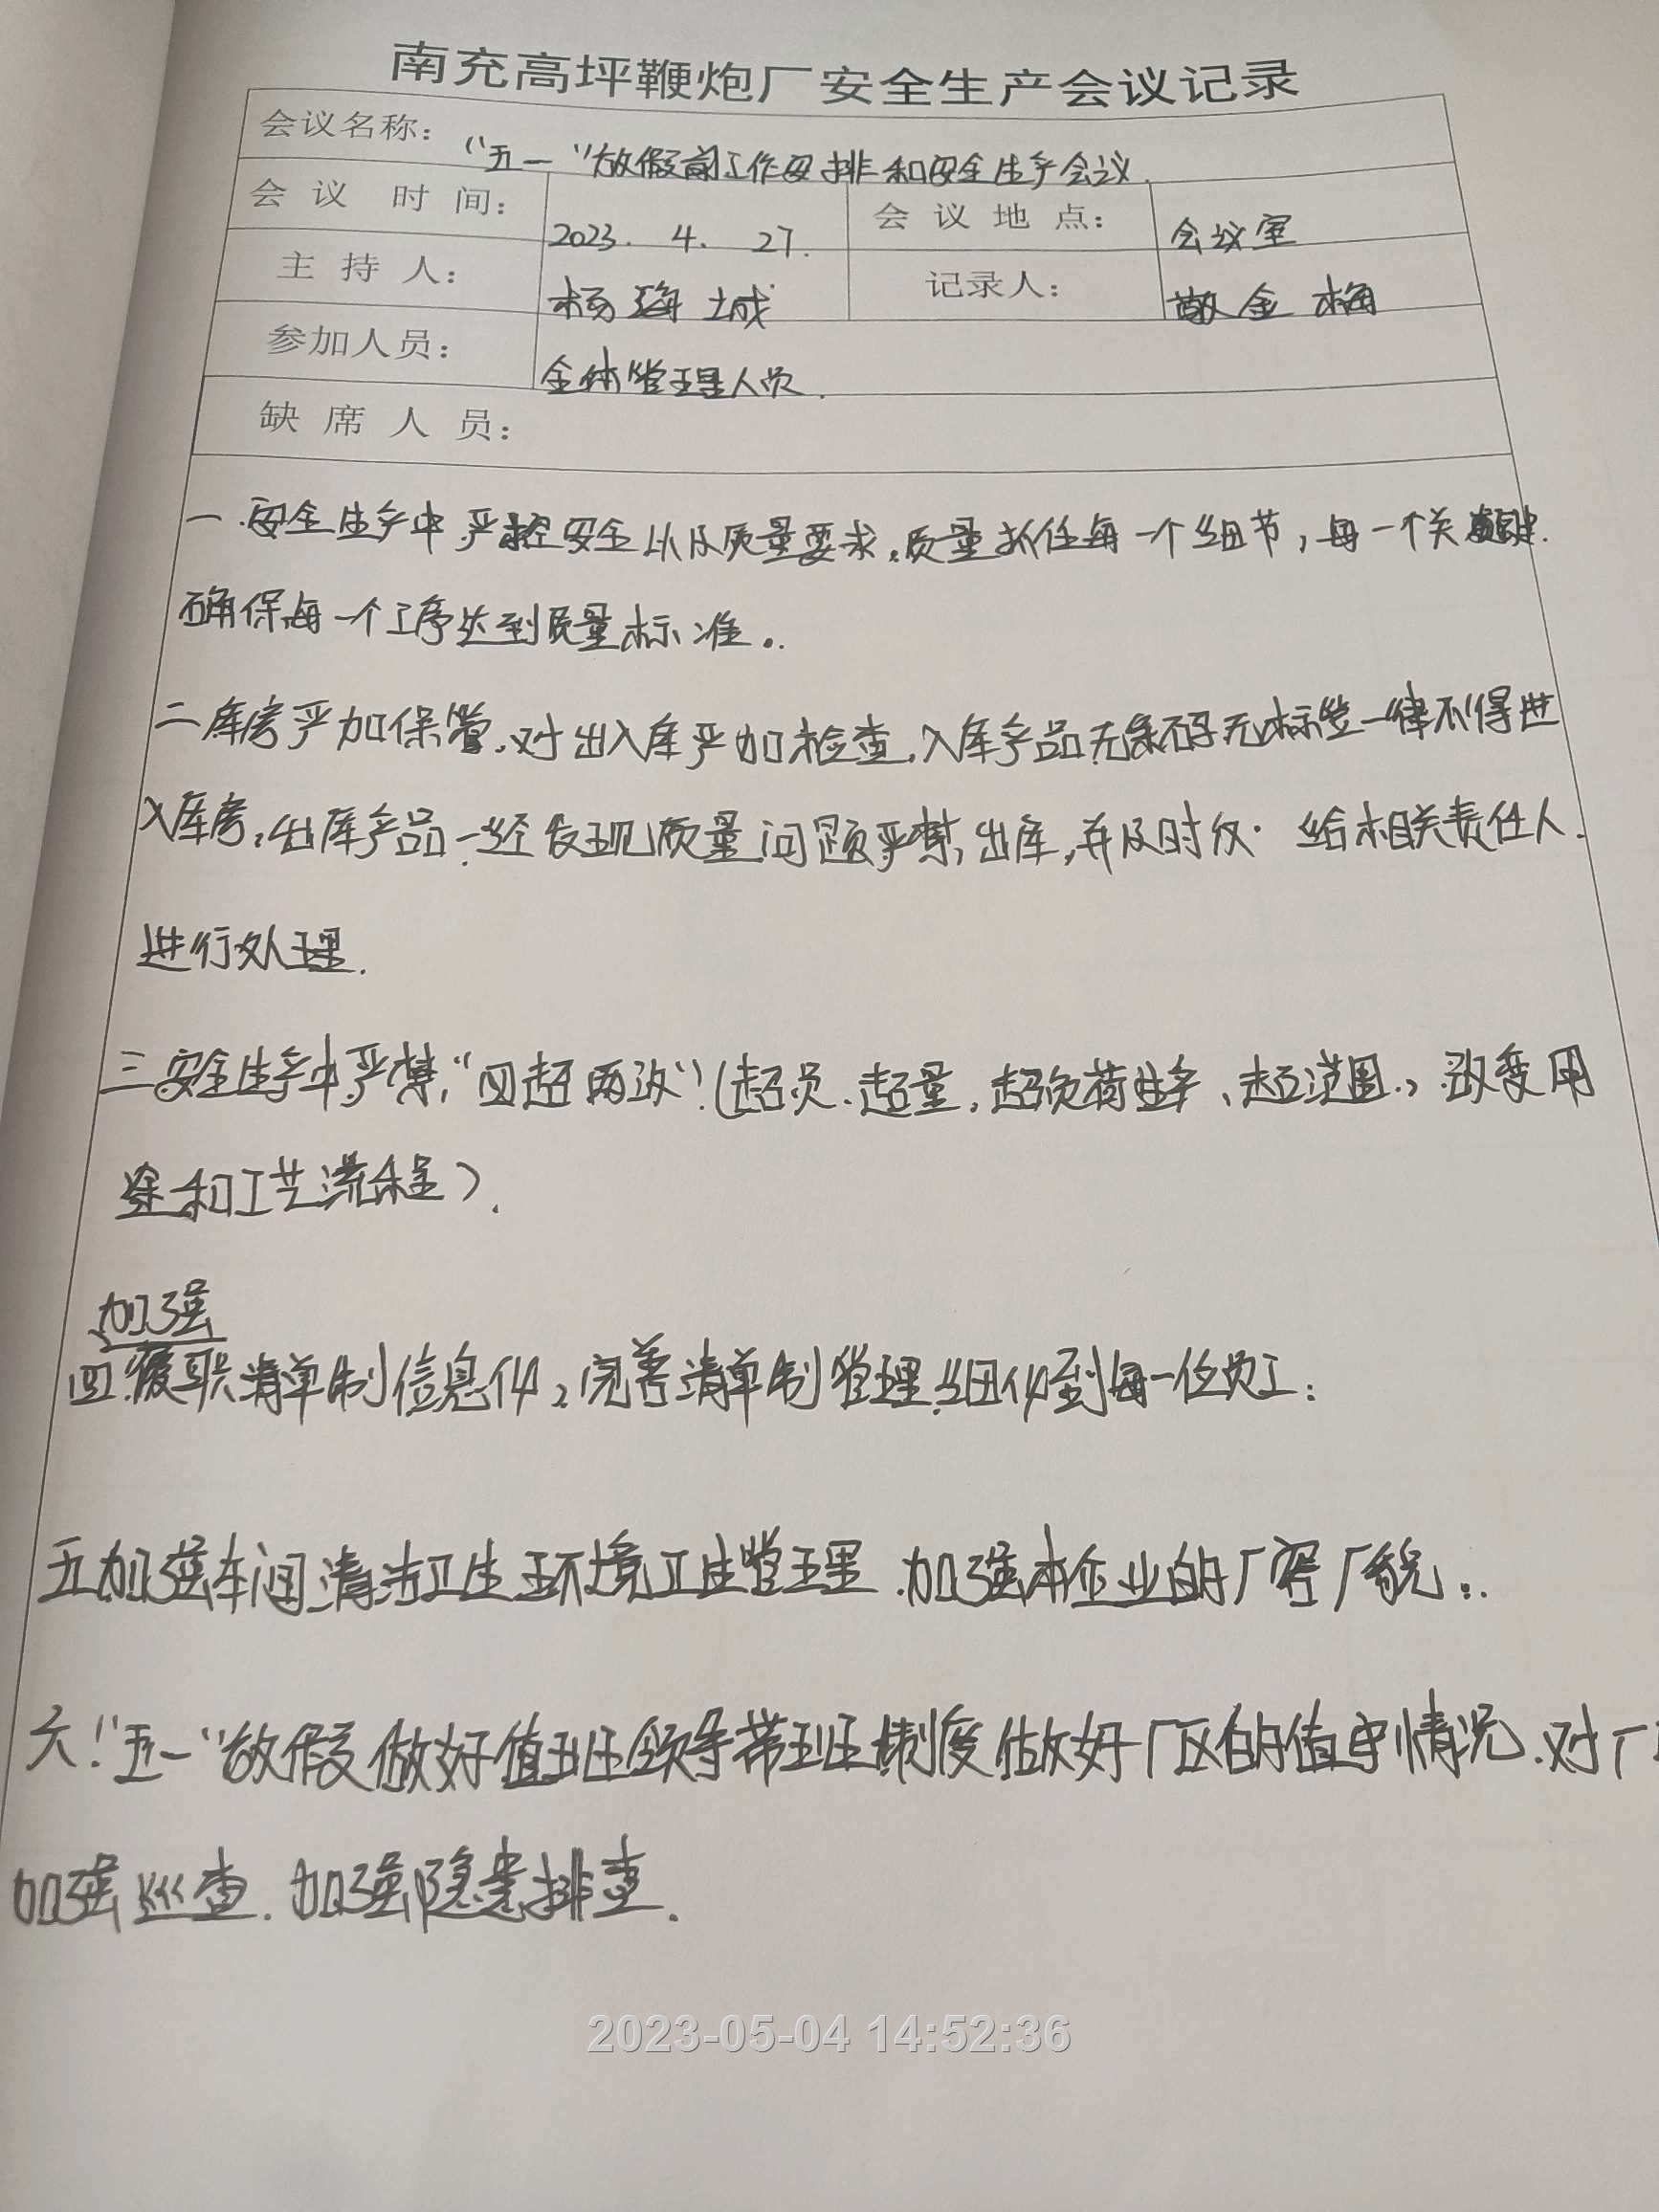 南充高坪鞭炮厂安全生产会议记录
会议名称：“五一”放假前工作安排和安全生产会议.
会议时间： 2023. 4. 27. 会议地点： 会议室
主持人： 杨海城 记录人： 敬金梅
参加人员： 全体管理人员.
缺席人员：
一.安全生产中严控安全以及质量要求,质量抓住每一个细节,每一个关键.
确保每一个工序达到质量标准..
二库房严加保管,对出入库严加检查,入库产品无条码无标签一律不得进
入库房,出库产品一经发现质量问题严禁出库,并及时 给相关责任人.
进行处理.
三安全生产中严禁“四超两改”(超员.超量,超负荷生产、超范围、改变用
途和工艺流程).
加强
四. 清单制信息化,完善清单制管理.细化到每一位员工:
五加强车间清洁卫生环境卫生管理.加强本企业的厂容厂貌:.
六!“五一”放假做好值班领导带班制度做好厂区的值守情况.对厂
加强巡查.加强隐患排查.
2023-05-04 14:52:36